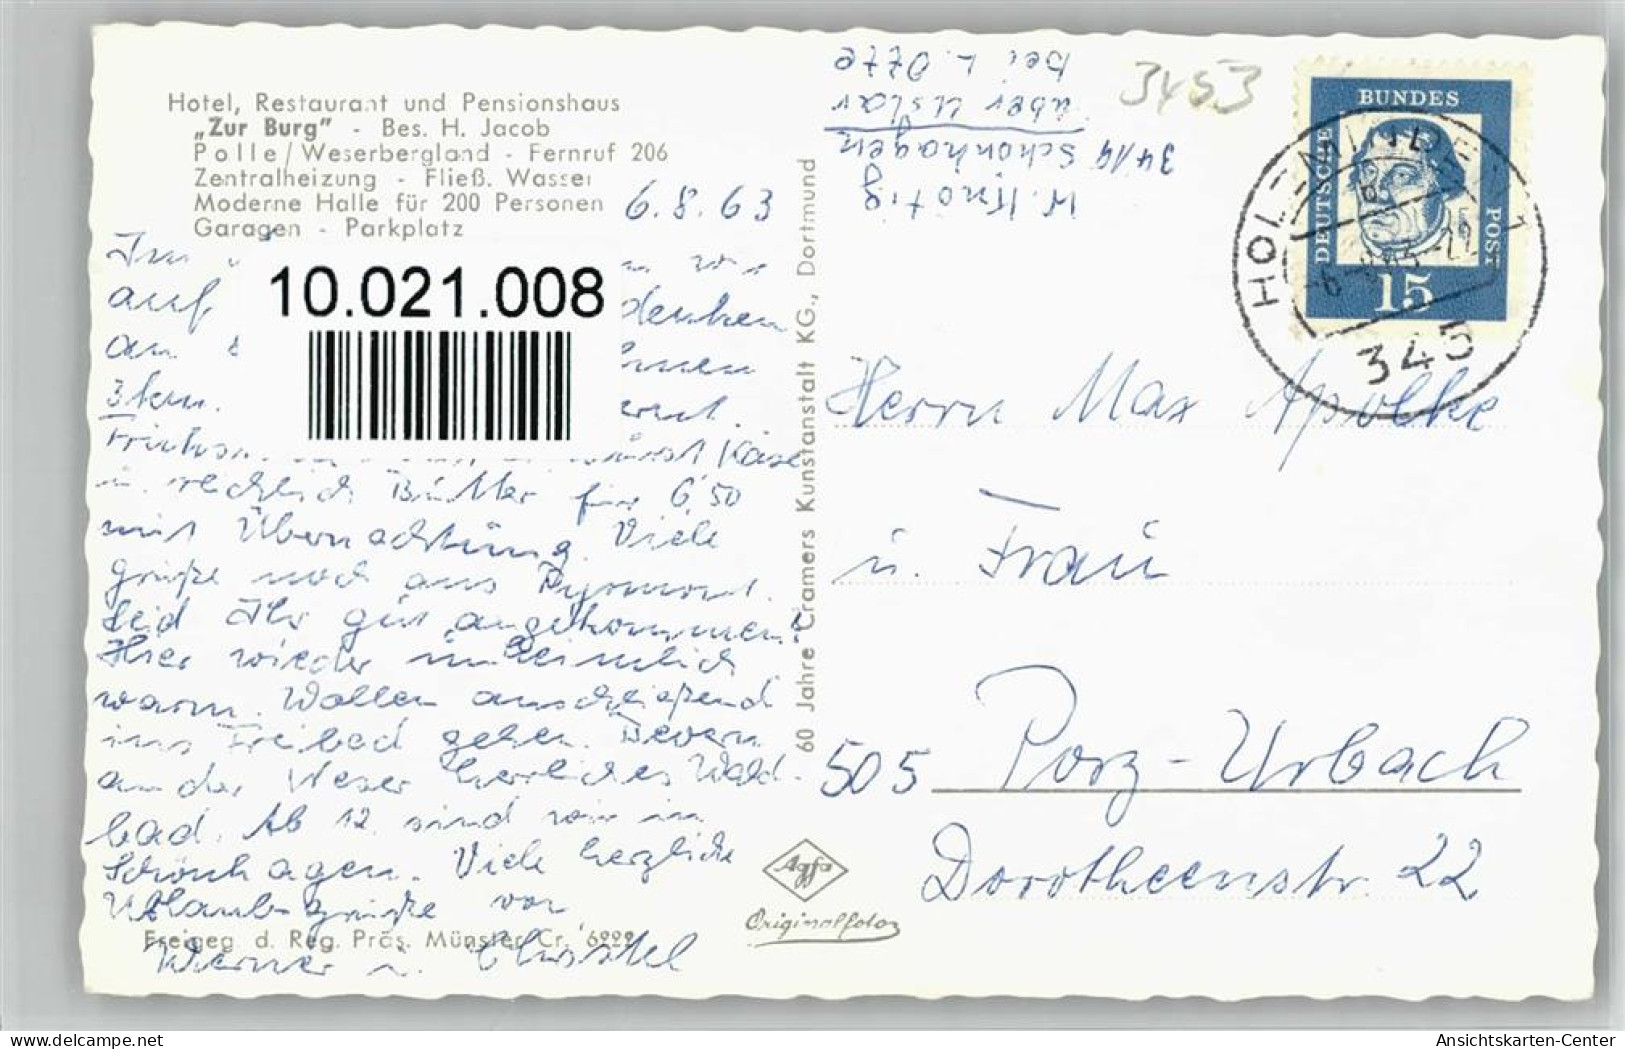 Hotel, Restaurant und Pensionshaus
„Zur Burg" - Bes. H. Jacob
Polle/Weserbergland - Fernruf 206
Zentralheizung - Fließ. Wasser
Moderne Halle für 200 Personen
Garagen - Parkplatz
6.8.63
auf denken
an
3 km.
10.021.008
Wurst Käse
u. reichlich Butter für 6,50
mit Übernachtung. Viele
grüße noch aus Pyrmont.
Seid Ihr gut angekommen?
Hier wieder unheimlich
warm. Wollen anschließend
ins Freibad gehen. Bevern
an der Weser herrliches Wald-
bad. Ab 12. sind wir in
Schönhagen. Viele herzliche
Urlaubsgrüße von
Werner u. Christel
Freigeg. d. Reg. Präs. Münster Cr. 6222
60 Jahre Cramers Kunstanstalt KG., Dortmund
W. Knotig
3414 Schönhagen
über Uslar
bei L. Otte
3453
DEUTSCHE
BUNDES
POST
15
HOLZMINDEN 1
345
Herrn Max Apolke
u. Frau
505 Porz-Urbach
Dorotheenstr. 22
Agfa
Originalfoto
Ansichtskarten-Center